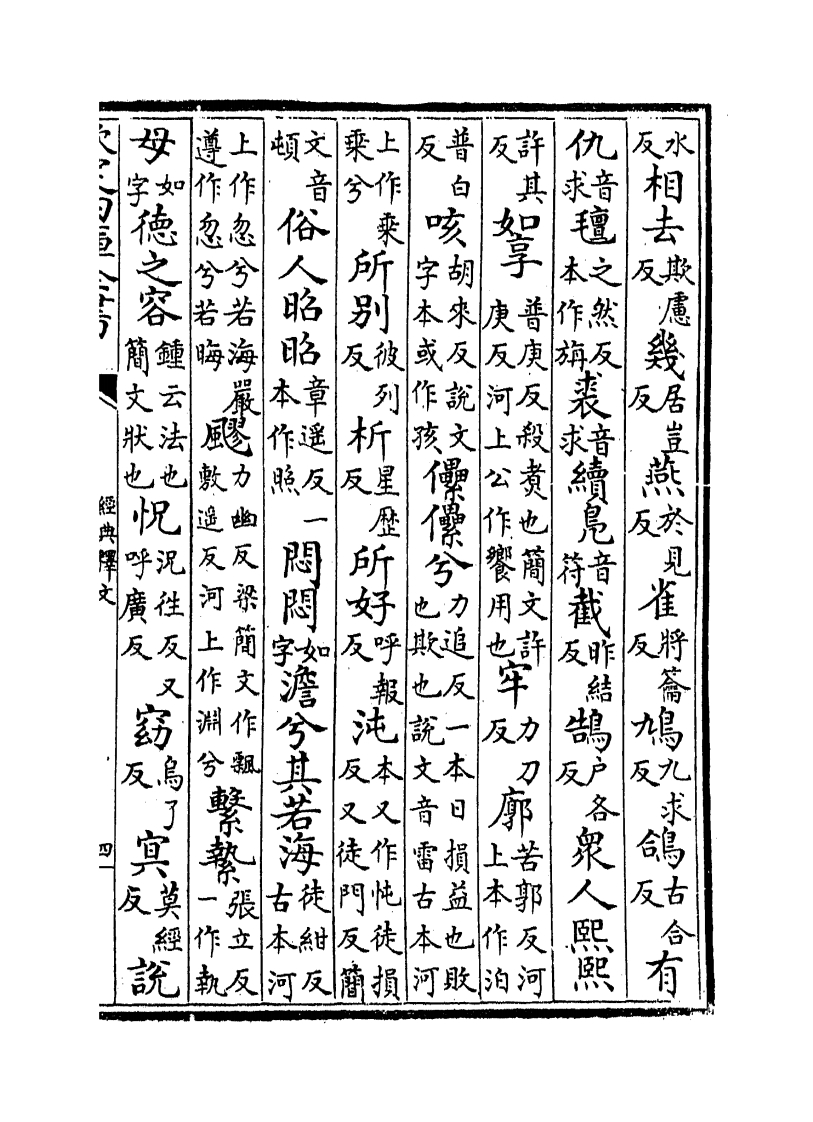 水反相去欺慮反幾居豈反燕於見反雀將籥反鳩九求反鴿古合反有
仇音求氊之然反本作旃裘音求續鳧音符截昨結反鵠户各反衆人熙熙
許其反如享普庚反殺煑也簡文許庚反河上公作饗用也牢力刀反廓苦郭反河上本作泊
普白反咳胡來反說文字本或作孩儽儽兮力追反一本曰損益也敗也欺也說文音雷古本河
上作乗乗兮所别彼列反析星歴反所好呼報反沌本又作忳徒損反又徒門反簡
文音頓俗人昭昭章遥反一本作照悶悶如字澹兮其若海徒紺反古本河
上作忽兮若海嚴遵作忽兮若晦飂力幽反梁簡文作飄敷遥反河上作淵兮繫縶張立反一作執
母如字徳之容鍾云法也簡文狀也怳況徃反又呼廣反窈烏了反㝠莫經反說
經典釋文
四